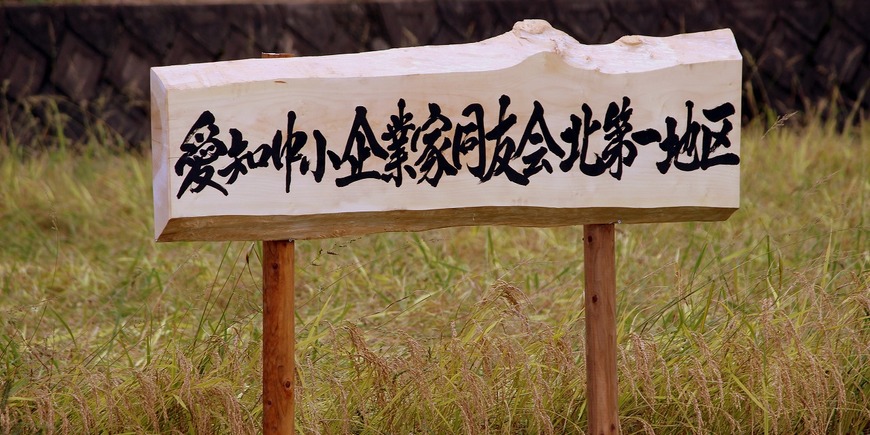 愛知中小企業家同友会北第一地区